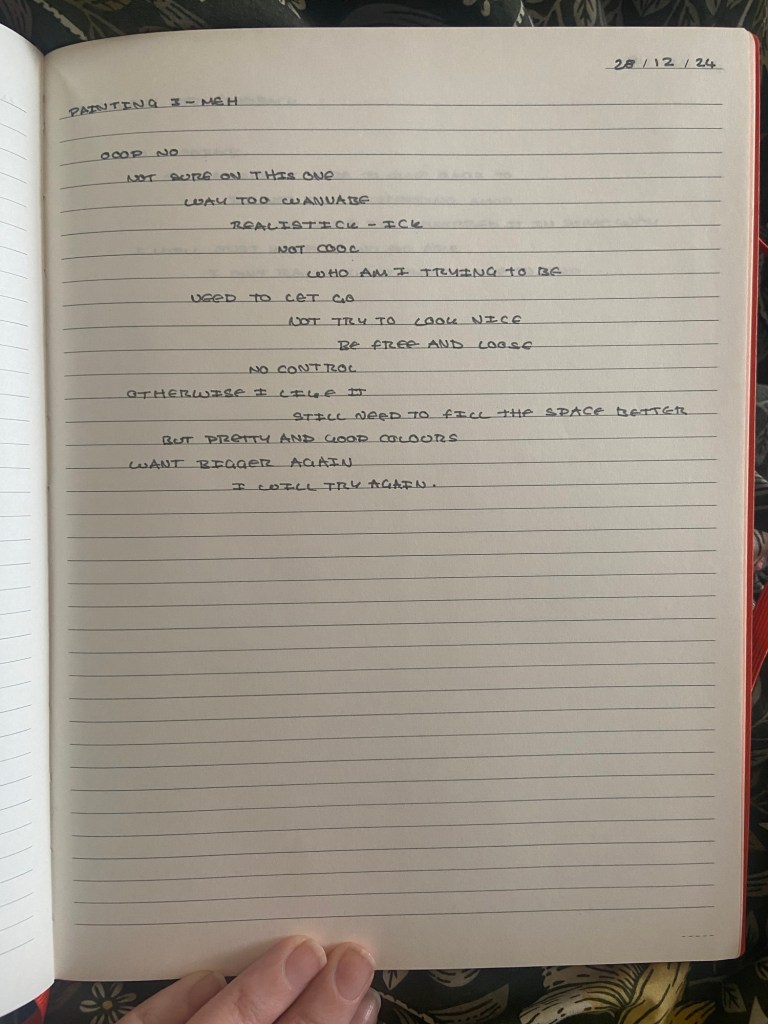 28/12/24
PAINTING 3 - MEH
OOOP NO
NOT SURE ON THIS ONE
WAY TOO WANNABE
REALISTICK - ICK
NOT COOL
WHO AM I TRYING TO BE
NEED TO LET GO
NOT TRY TO LOOK NICE
BE FREE AND LOOSE
NO CONTROL
OTHERWISE I LIKE IT
STILL NEED TO FILL THE SPACE BETTER
BUT PRETTY AND GOOD COLOURS
WANT BIGGER AGAIN
I WILL TRY AGAIN.